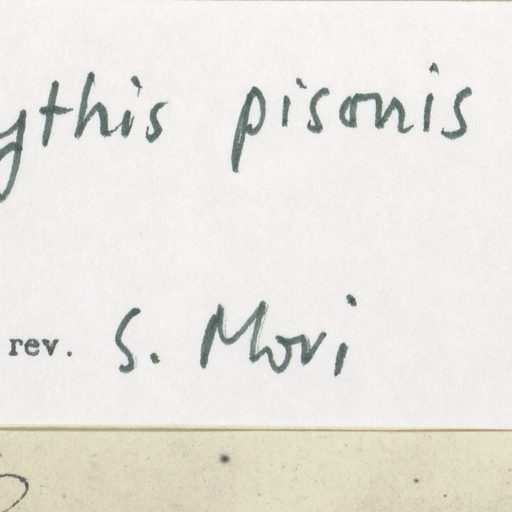 ythis pisonis
rev. S. Mori